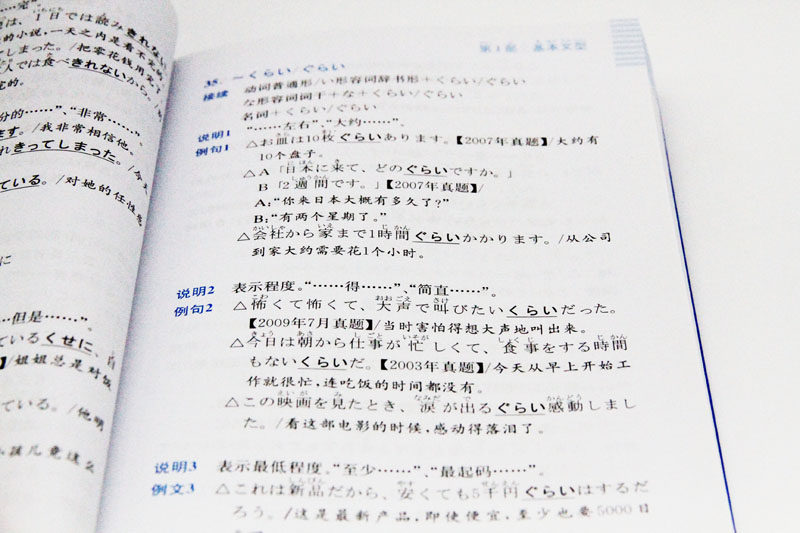 完"。
は、1日では読みきれない
的小说,一天之内是看不完的
てしまった。/把零花钱用完了
人では食べきれないから。/
完的。
分的……"、"非常……"
ます。/我非常相信他。
れきってしまった。/今天
ている。/对她的任性感
に
…但是……"。
ているくせに、自
】/姐姐总是对饭
ている。/他明
小孩儿竟这么
第1部 基本文型
35. ～くらい/ぐらい
接续 动词普通形/い形容词辞书形+くらい/ぐらい
な形容词词干+な+くらい/ぐらい
名词+くらい/ぐらい
说明1 "……左右"、"大约……"。
例句1 △お皿は10枚ぐらいあります。【2007年真题】/大约有
10个盘子。
△A「日本に来て、どのぐらいですか。」
B「2週間です。」【2007年真题】/
A:"你来日本大概有多久了?"
B:"有两个星期了。"
△会社から家まで1時間ぐらいかかります。/从公司
到家大约需要花1个小时。
说明2 表示程度。"……得……"、"简直……"。
例句2 △怖くて怖くて、大声で叫びたいくらいだった。
【2009年7月真题】/当时害怕得想大声地叫出来。
△今日は朝から仕事が忙しくて、食事をする時間
もないくらいだ。【2003年真题】/今天从早上开始工
作就很忙,连吃饭的时间都没有。
△この映画を見たとき、涙が出るぐらい感動しまし
た。/看这部电影的时候,感动得落泪了。
说明3 表示最低程度。"至少……"、"最起码……"。
例文3 △これは新品だから、安くても5千円ぐらいはするだ
ろう。/这是最新产品,即使便宜,至少也要5000日